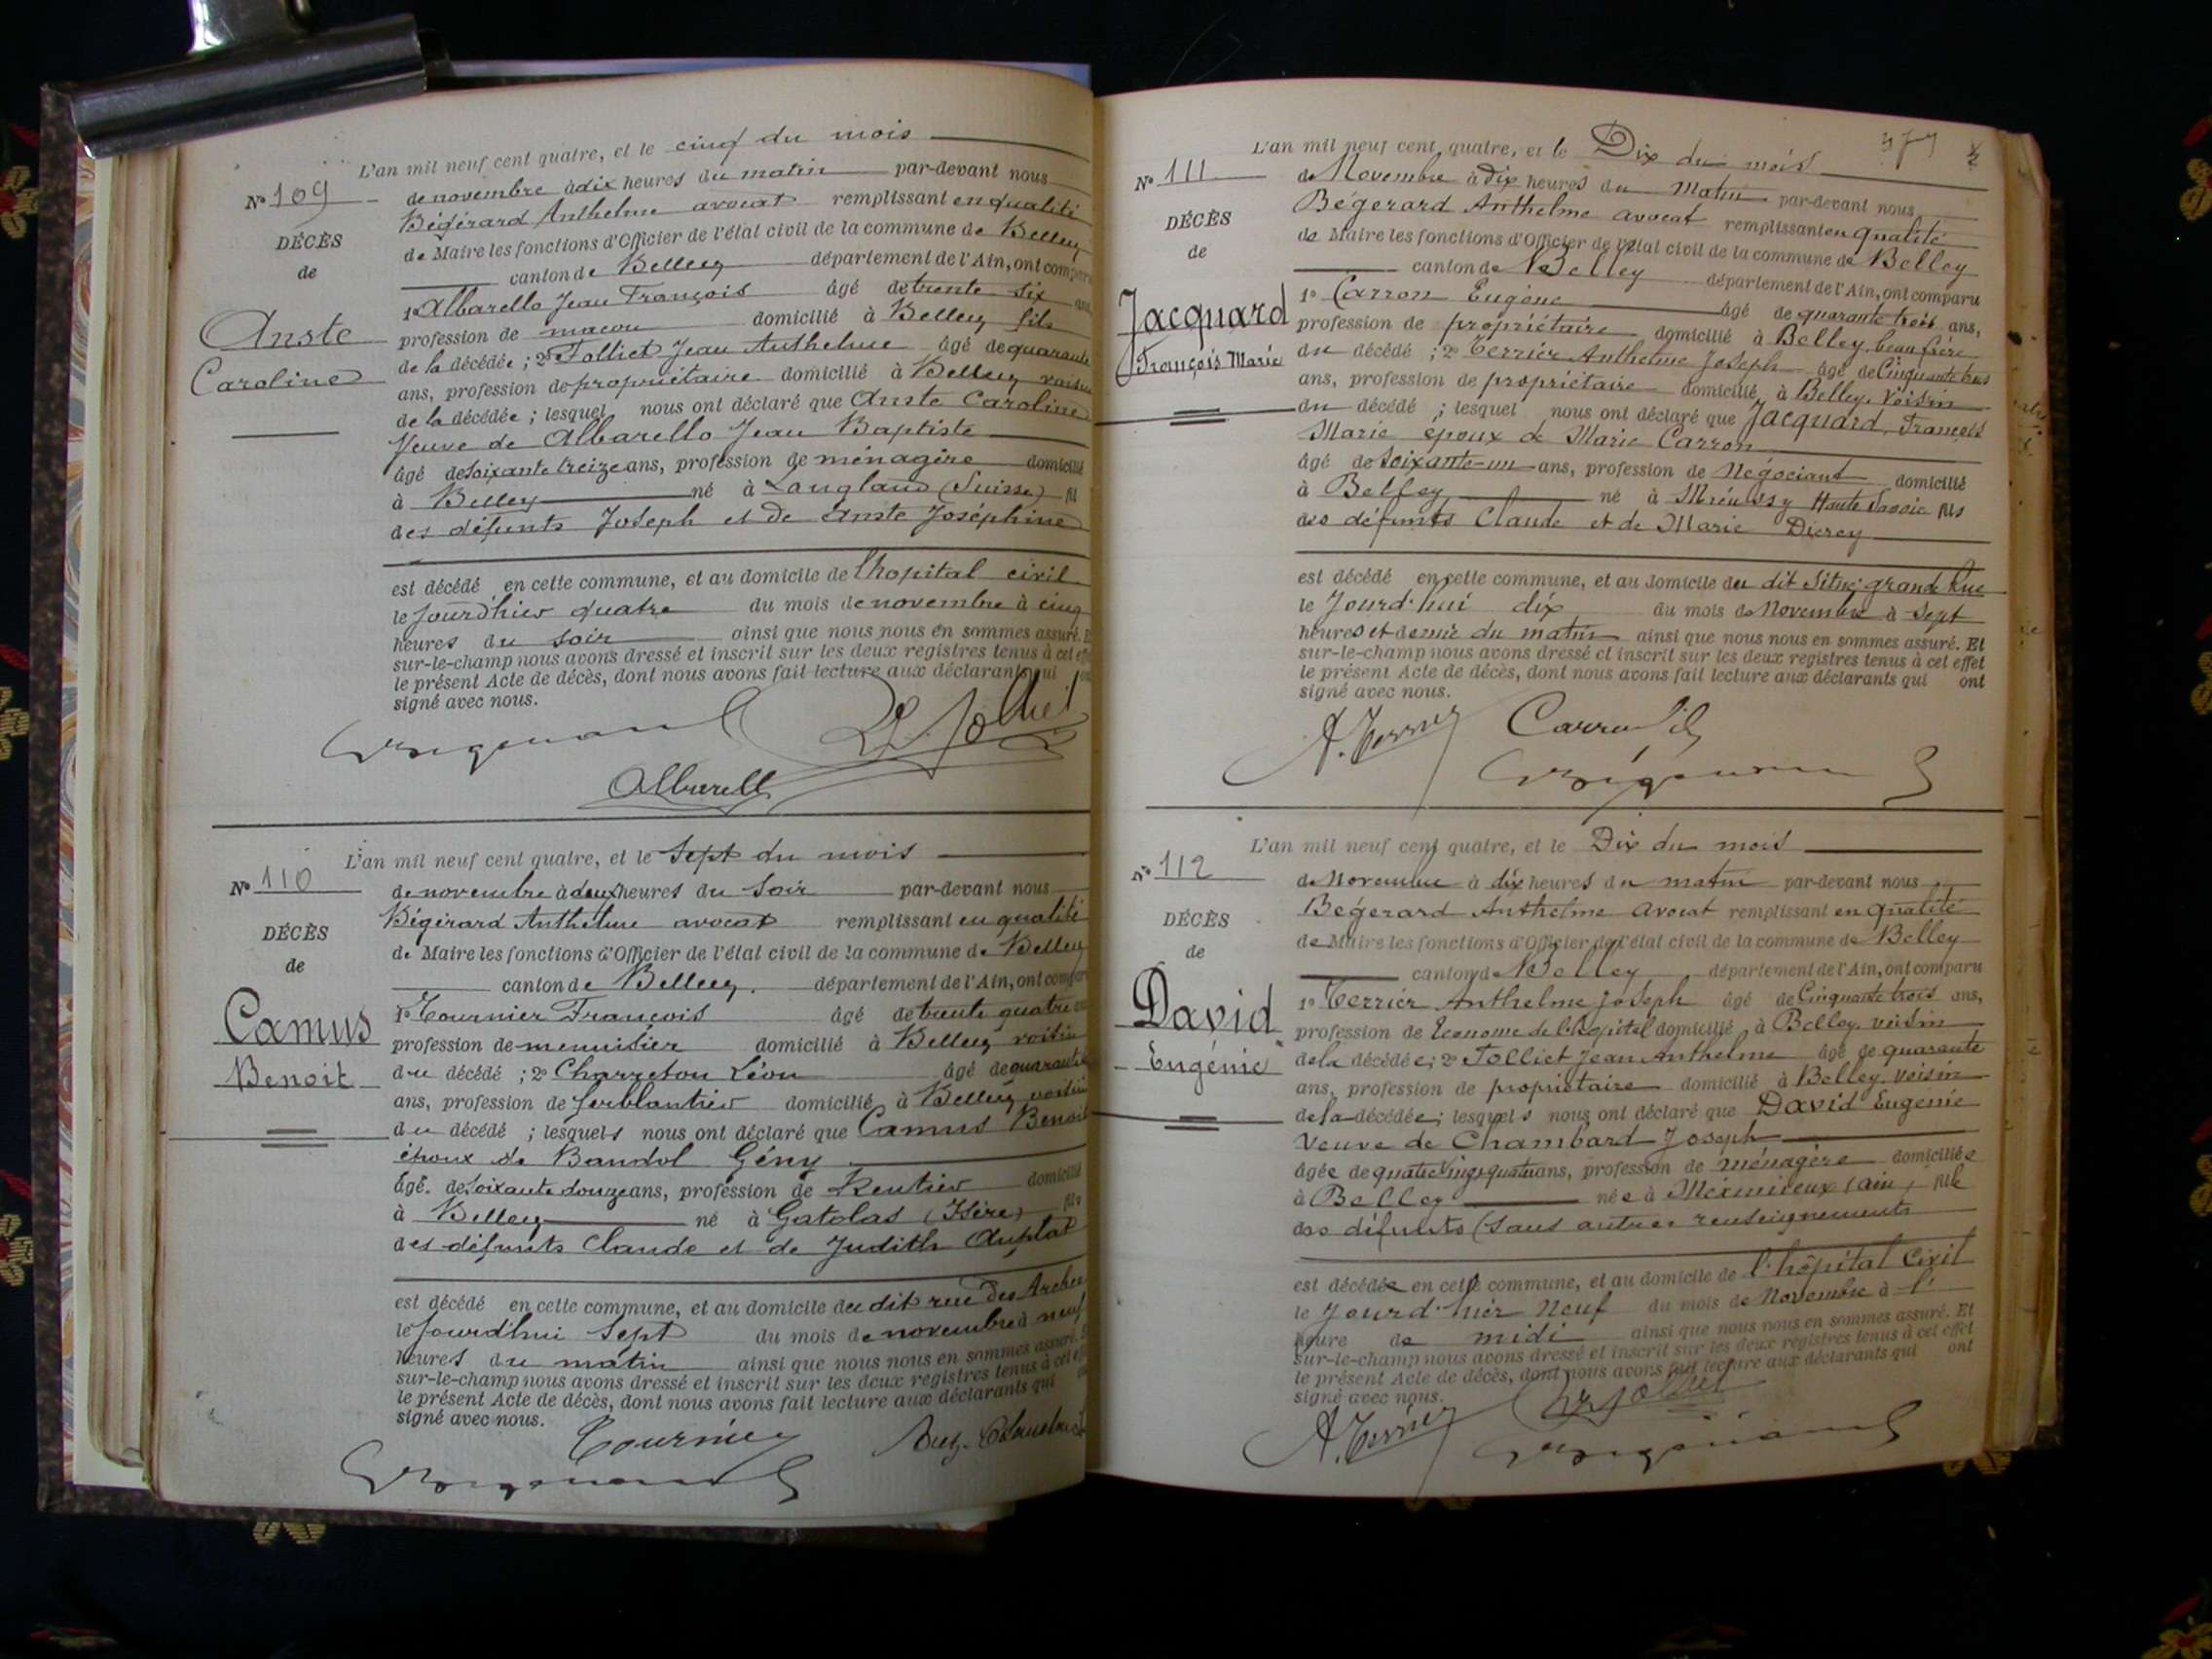 L'an mil neuf cent quatre, et le cinq du mois
N° 109
de novembre à dix heures du matin par-devant nous
Bégérard Anthelme avocat remplissant en qualité
DÉCÈS
de Maire les fonctions d'Officier de l'état civil de la commune de Belley
de
canton de Belley département de l'Ain, ont comparu
1° Albarello Jean François âgé de trente six ans,
Anste
profession de maçon domicilié à Belley fils
de la décédée ; 2° Tolliet Jean Anthelme âgé de quarante
Caroline
ans, profession de propriétaire domicilié à Belley voisin
de la décédée ; lesquel nous ont déclaré que Anste Caroline
Veuve de Albarello Jean Baptiste
âgé de soixante treize ans, profession de ménagère domicilié
à Belley né à Langland (Suisse) fil
des défunts Joseph et de Anste Joséphine
est décédé en cette commune, et au domicile de l'hopital civil
le Jourd'hier quatre du mois de novembre à cinq
heures du soir ainsi que nous nous en sommes assuré. Et
sur-le-champ nous avons dressé et inscrit sur les deux registres tenus à cet effet
le présent Acte de décès, dont nous avons fait lecture aux déclarants qui ont
signé avec nous.
Tolliet
Albarello
L'an mil neuf cent quatre, et le sept du mois
N° 110
de novembre à deux heures du soir par-devant nous
Bégérard Anthelme avocat remplissant en qualité
DÉCÈS
de Maire les fonctions d'Officier de l'état civil de la commune de Belley
de
canton de Belley. département de l'Ain, ont comparu
1° Tournier François âgé de trente quatre ans
Camus
profession de menuisier domicilié à Belley voisin
du décédé ; 2° Charreton Léon âgé de quarante
Benoit
ans, profession de ferblantier domicilié à Belley voisin
du décédé ; lesquels nous ont déclaré que Camus Benoit
époux de Bandol Gény
âgé de soixante douze ans, profession de Rentier domicilié
à Belley né à Gatolas (Isère) fils
des défunts Claude et de Judith Anplat
est décédé en cette commune, et au domicile du dit rue des Arches
le Jourd'hui sept du mois de novembre à neuf
heures du matin ainsi que nous nous en sommes assuré. Et
sur-le-champ nous avons dressé et inscrit sur les deux registres tenus à cet effet
le présent Acte de décès, dont nous avons fait lecture aux déclarants qui ont
signé avec nous.
Tournier
L'an mil neuf cent quatre, et le Dix du mois
N° 111
de Novembre à Dix heures du Matin par-devant nous
Bégerard Anthelme avocat remplissant en qualité
DÉCÈS
de Maire les fonctions d'Officier de l'état civil de la commune de Belley
de
canton de Belley département de l'Ain, ont comparu
1° Carron Eugène âgé de quarante trois ans,
Jacquard
profession de propriétaire domicilié à Belley, beau frère
François Marie
du décédé ; 2° Terrier Anthelme Joseph âgé de Cinquante trois
ans, profession de propriétaire domicilié à Belley, voisin
du décédé ; lesquel nous ont déclaré que Jacquard, François
Marie époux de Marie Carron
âgé de Soixante-un ans, profession de Négociant domicilié
à Belley, né à Haute Savoie fils
des défunts Claude et de Marie Dierey
est décédé en cette commune, et au domicile du dit Situé grande Rue
le Jourd'hui dix du mois de Novembre à sept
heures et demie du matin ainsi que nous nous en sommes assuré. Et
sur-le-champ nous avons dressé et inscrit sur les deux registres tenus à cet effet
le présent Acte de décès, dont nous avons fait lecture aux déclarants qui ont
signé avec nous.
A. Terrier Carron
L'an mil neuf cent quatre, et le Dix du mois
N° 112
de Novembre à dix heures du matin par-devant nous
Bégerard Anthelme Avocat remplissant en qualité
DÉCÈS
de Maire les fonctions d'Officier de l'état civil de la commune de Belley
de
canton de Belley département de l'Ain, ont comparu
1° Terrier Anthelme Joseph âgé de Cinquante trois ans,
David
profession de Econome de l'hopital domicilié à Belley, voisin
Eugénie
de la décédée ; 2° Tolliet Jean Anthelme âgé de quarante
ans, profession de propriétaire domicilié à Belley, voisin
de la décédée ; lesquels nous ont déclaré que David Eugénie
Veuve de Chambard Joseph
âgée de quatre vingt quatre ans, profession de ménagère domiciliée
à Belley née à Méximieux (ain) fille
des défunts (sans autres renseignements
est décédée en cette commune, et au domicile de l'hôpital Civil
le Jourd'hier Neuf du mois de Novembre à l'
heure de midi ainsi que nous nous en sommes assuré. Et
sur-le-champ nous avons dressé et inscrit sur les deux registres tenus à cet effet
le présent Acte de décès, dont nous avons fait lecture aux déclarants qui ont
signé avec nous.
A. Terrier Tolliet